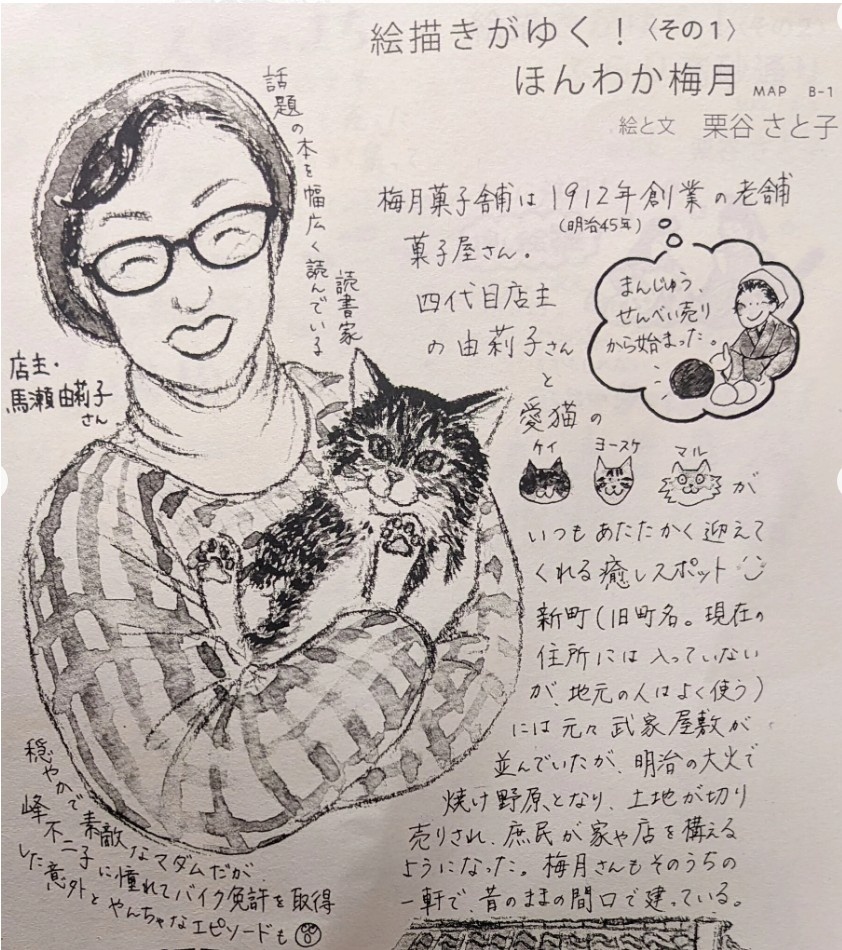 絵描きがゆく!〈その1〉
ほんわか梅月 MAP B-1
絵と文 栗谷 さと子
話題の本を幅広く読んでいる
読書家
店主・
馬瀬由莉子
さん
梅月菓子舗は1912年創業の老舗
(明治45年)
菓子屋さん。
四代目店主
の由莉子さん
と
まんじゅう、
せんべい売り
から始まった。
愛猫の
ケイ ヨースケ マル
が
いつもあたたかく迎えて
くれる癒しスポット
新町(旧町名。現在の
住所には入っていない
が、地元の人はよく使う)
には元々武家屋敷が
並んでいたが、明治の大火で
焼け野原となり、土地が切り
売りされ、庶民が家や店を構える
ようになった。梅月さんもそのうちの
一軒で、昔のままの間口で建っている。
穏やかで素敵なマダムだが、
峰不二子に憧れてバイク免許を取得
した意外とやんちゃなエピソードも